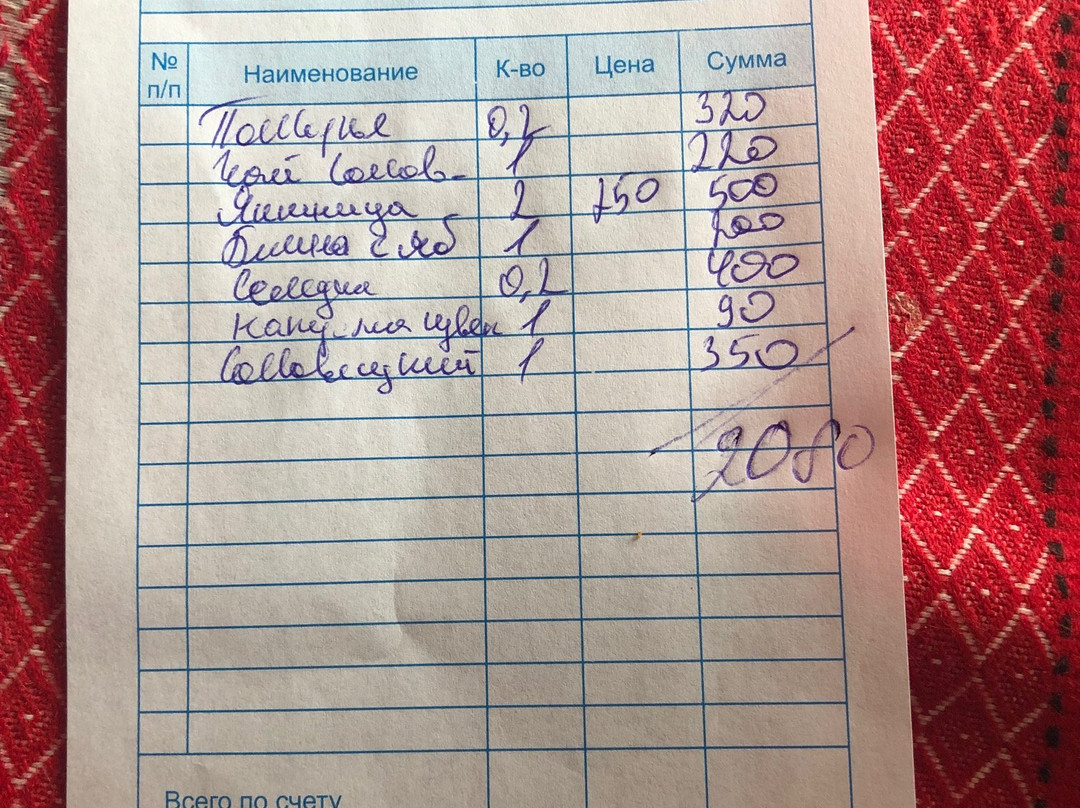 № п/п Наименование К-во Цена Сумма
0,2 320
Чай Солов- 1 220
Яишница 2 250 500
Блины с яб 1 200
0,2 400
1 90
Соловецкий 1 350
2080
Всего по счету